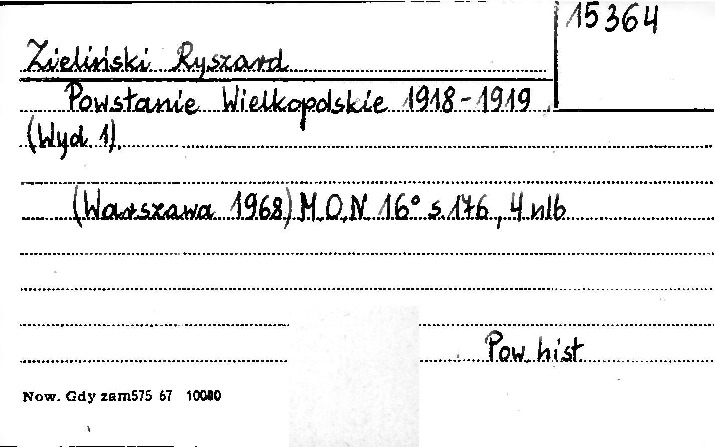 15364
Zieliński Ryszard
Powstanie Wielkopolskie 1918-1919
(Wyd 1).
(Warszawa 1968) M.O.N 16° s.176, 4 nlb
Pow. hist
Now. Gdy zam575 67 10000